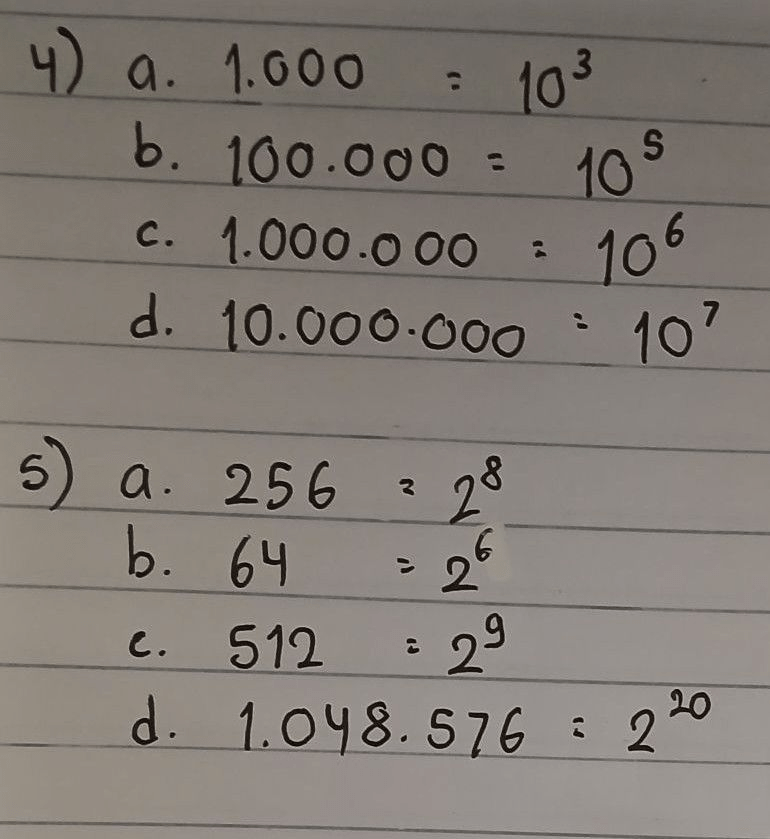 4) a. 1.000 = 10³
b. 100.000 = 10⁵
c. 1.000.000 = 10⁶
d. 10.000.000 = 10⁷
5) a. 256 = 2⁸
b. 64 = 2⁶
c. 512 = 2⁹
d. 1.048.576 = 2²⁰